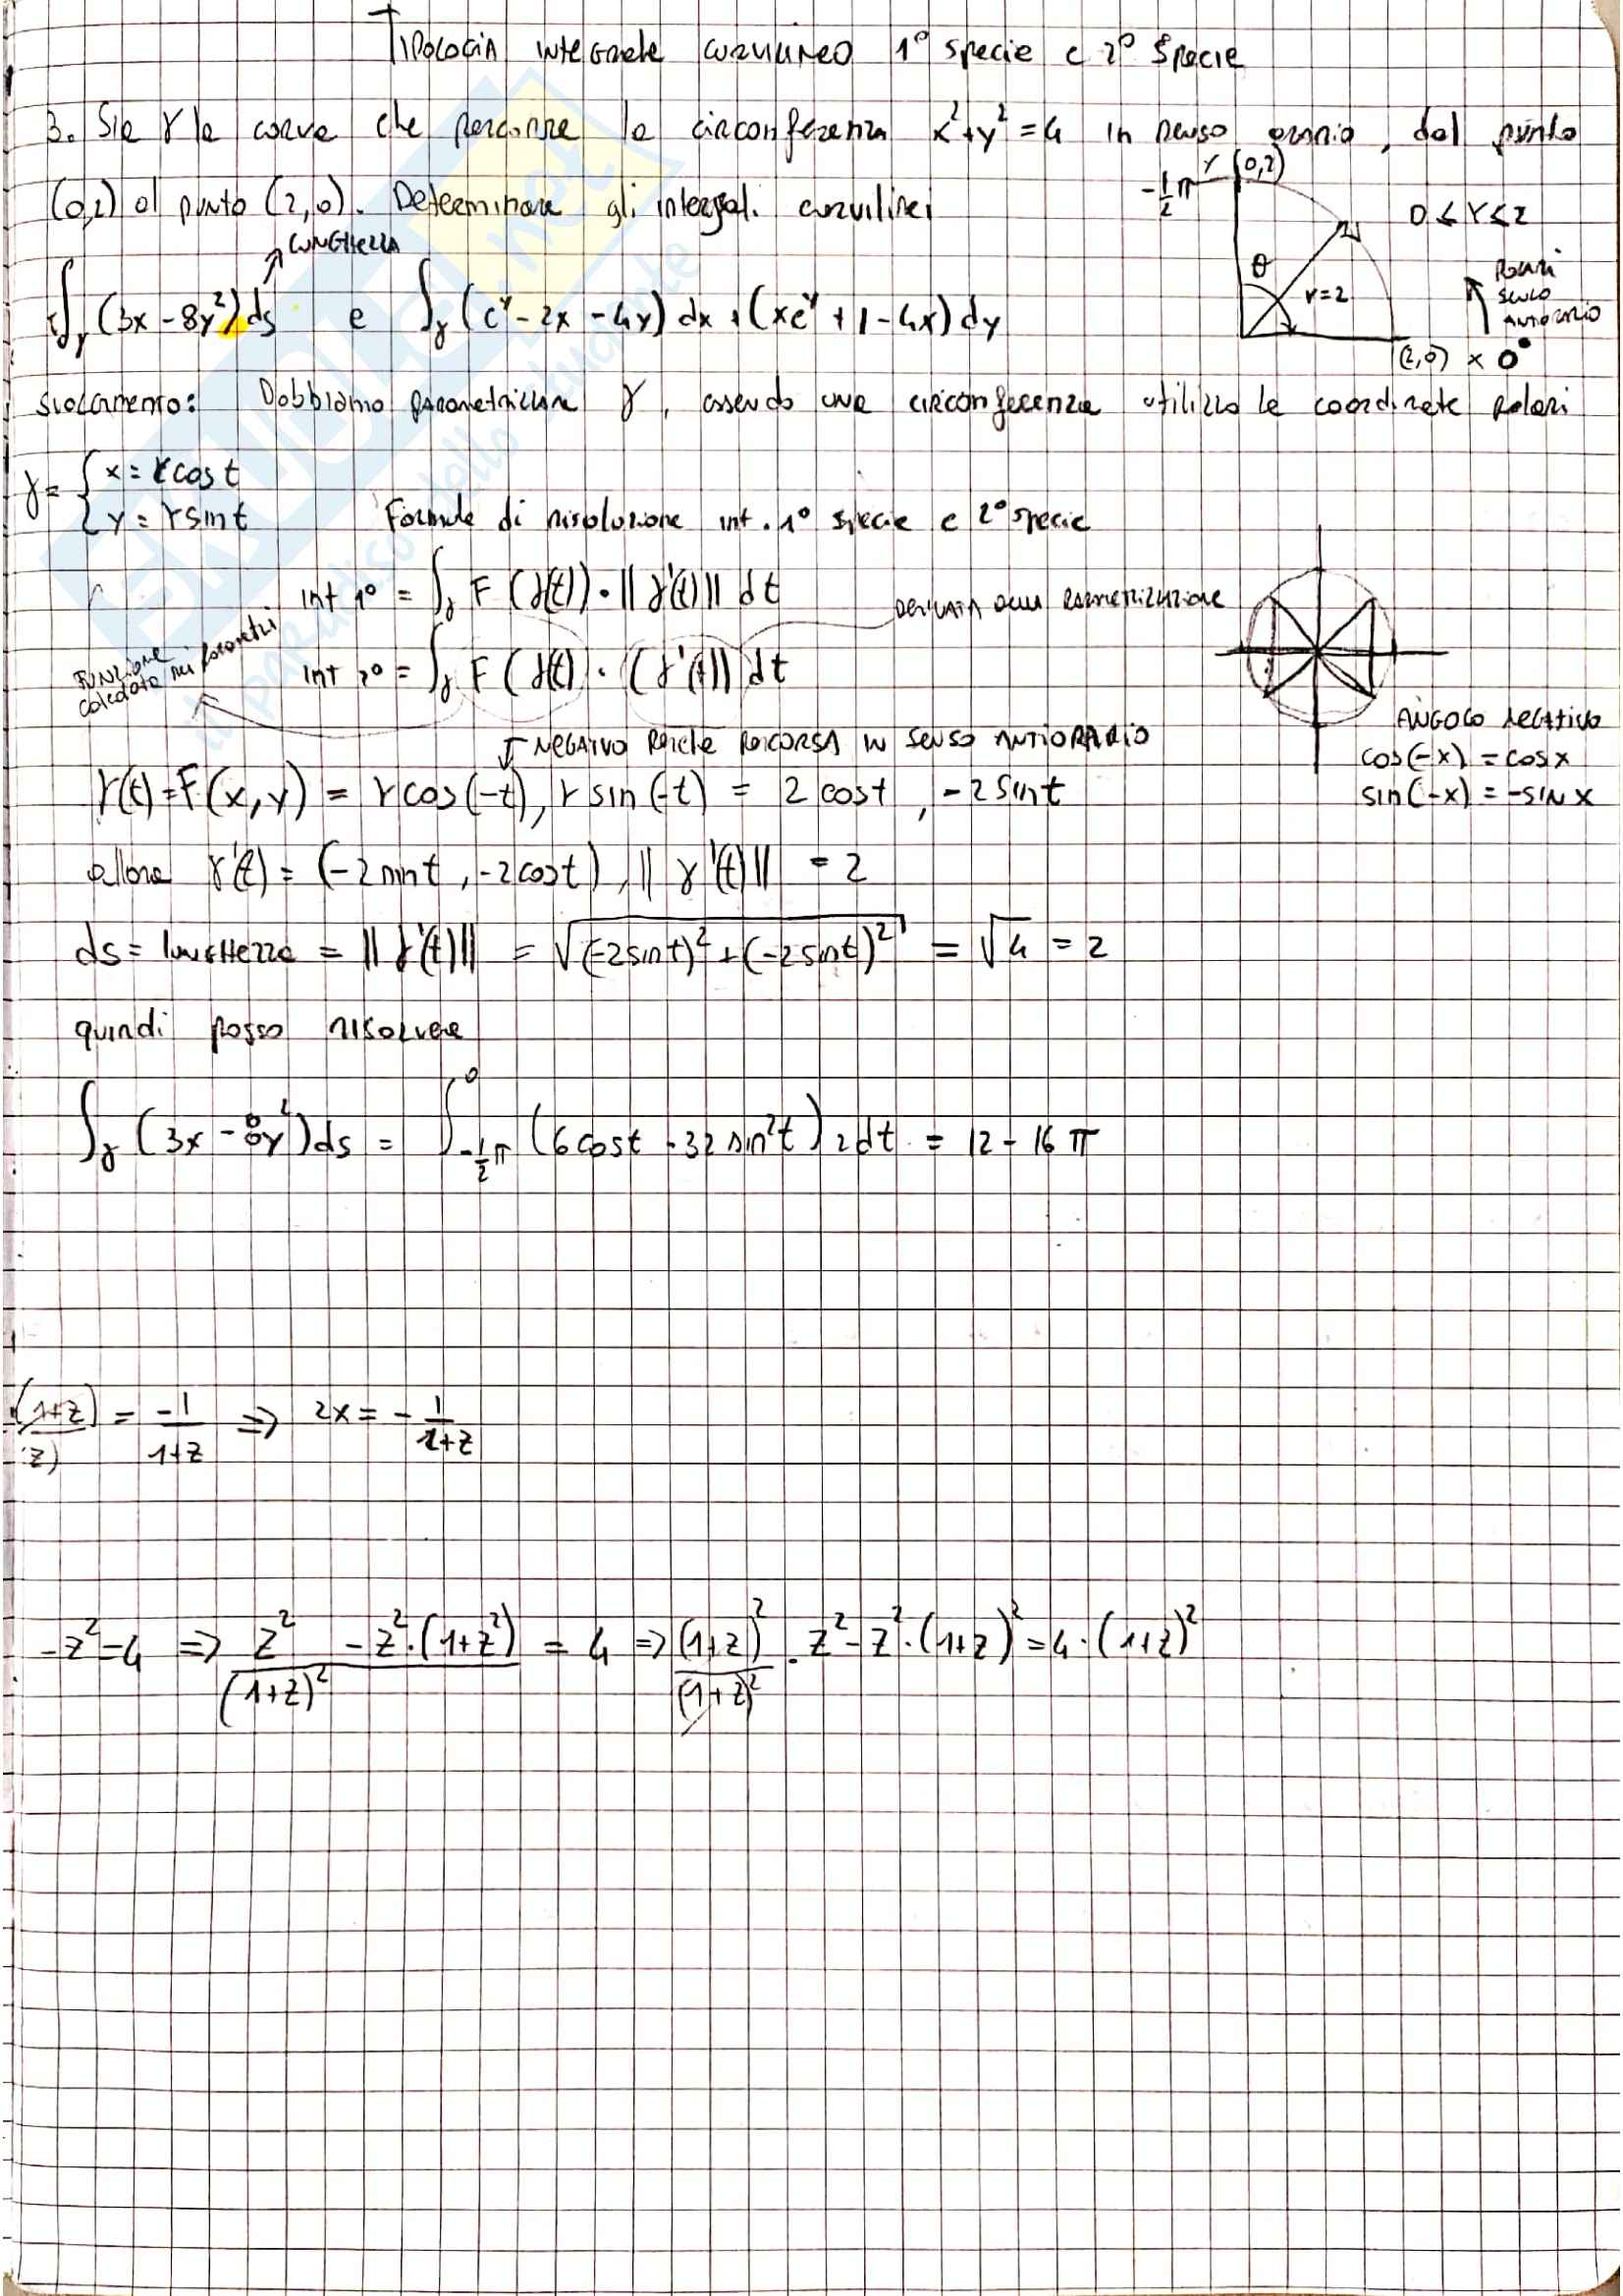 Tipologia integrale curvilineo 1° specie e 2° specie
3. Sia γ la curva che percorre la circonferenza x²+y²=4 in senso orario, dal punto
(0,2) al punto (2,0). Determinare gli integrali curvilinei
LUNGHEZZA
∫γ (3x-8y²)ds e ∫γ (e^y-2x-4y)dx+(xe^y+1-4x)dy
-1/2 π Y (0,2)
0≤r≤2
θ r=2
POLARI SENSO ANTIORARIO
(2,0) x 0°
svolgimento: Dobbiamo parametrizzare γ, essendo una circonferenza utilizzo le coordinate polari
γ= { x=r cos t
y=r sin t
Formule di risoluzione int. 1° specie e 2° specie
int 1° = ∫γ F(γ(t))·||γ'(t)|| dt
DERIVATA DELLA PARAMETRIZZAZIONE
int 2° = ∫γ F(γ(t)·(γ'(t)) dt
FUNZIONE calcolata nei parametri
NEGATIVO PERCHE PERCORSA IN SENSO ANTIORARIO
γ(t)=F(x,y) = r cos(-t), r sin(-t) = 2 cos t, -2 sin t
ANGOLO NEGATIVO
cos(-x)=cos x
sin(-x)=-sin x
allora γ'(t)=(-2 sin t, -2 cos t), ||γ'(t)|| = 2
ds = lunghezza = ||γ'(t)|| = √(-2 sin t)²+(-2 sin t)² = √4 = 2
quindi posso risolvere
∫γ (3x-8y²)ds = ∫_{-1/2 π}^{0} (6 cos t -32 sin² t) 2dt = 12-16π
(1+z)/z) = -1/1+z ⇒ 2x = -1/1+z
-z²=4 ⇒ z² -z²·(1+z²)/(1+z)² = 4 ⇒ (1+z)²/(1+z)² · z²-z²·(1+z)²=4·(1+z)²